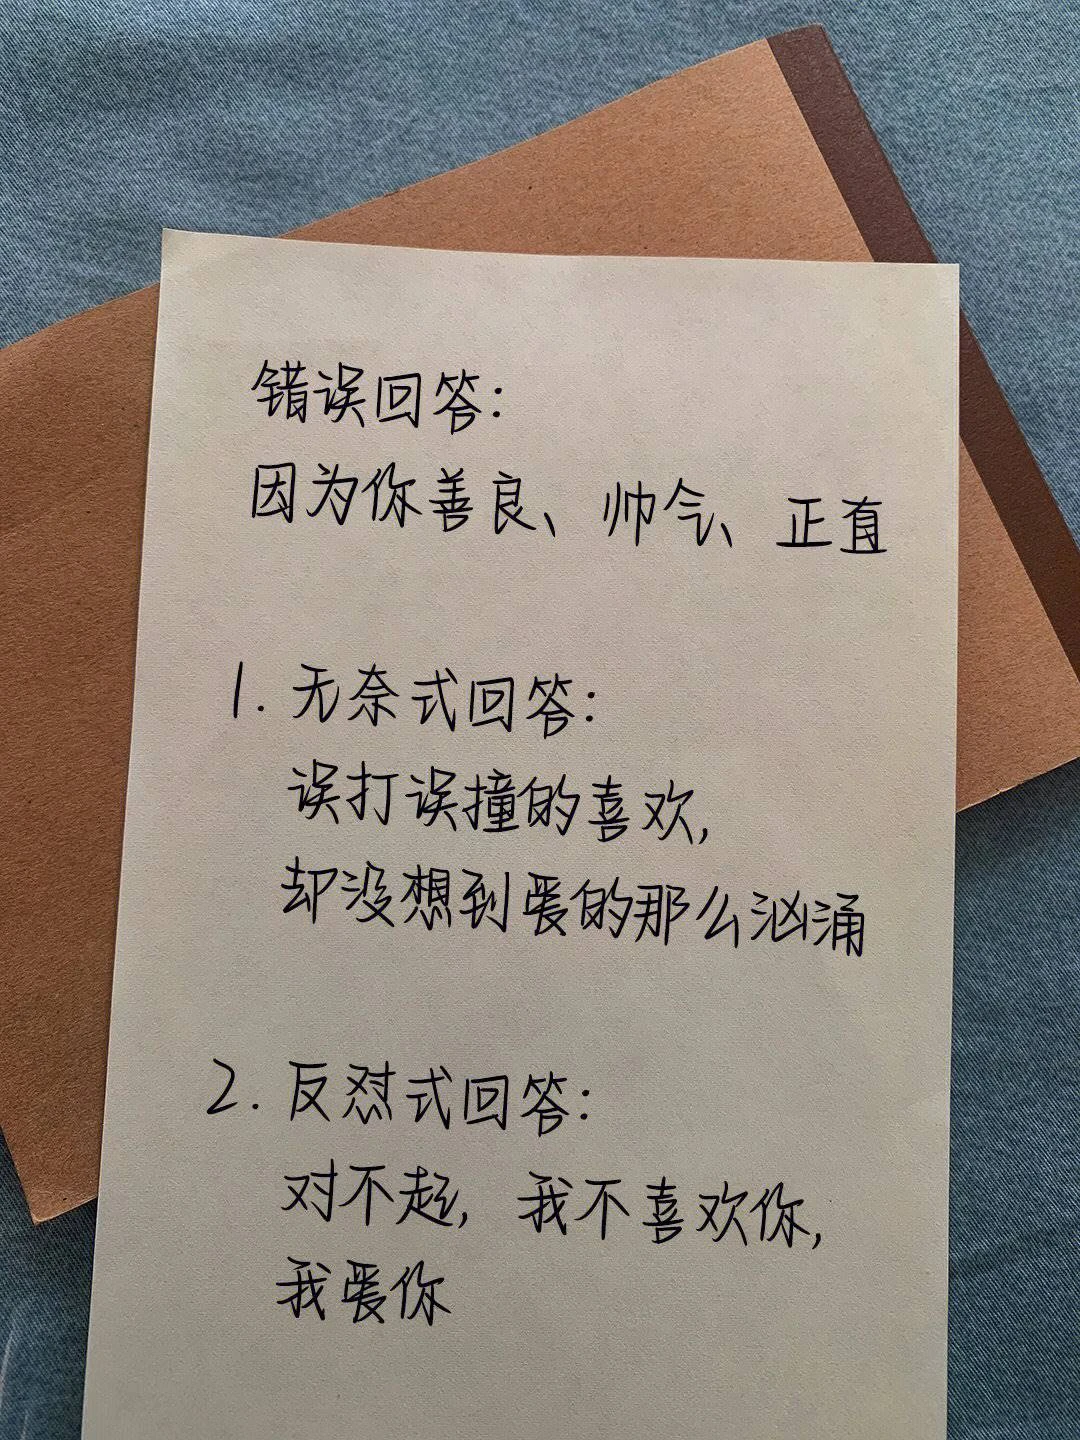 错误回答：
因为你善良、帅气、正直
1. 无奈式回答：
误打误撞的喜欢，
却没想到爱的那么汹涌
2. 反怼式回答：
对不起，我不喜欢你，
我爱你